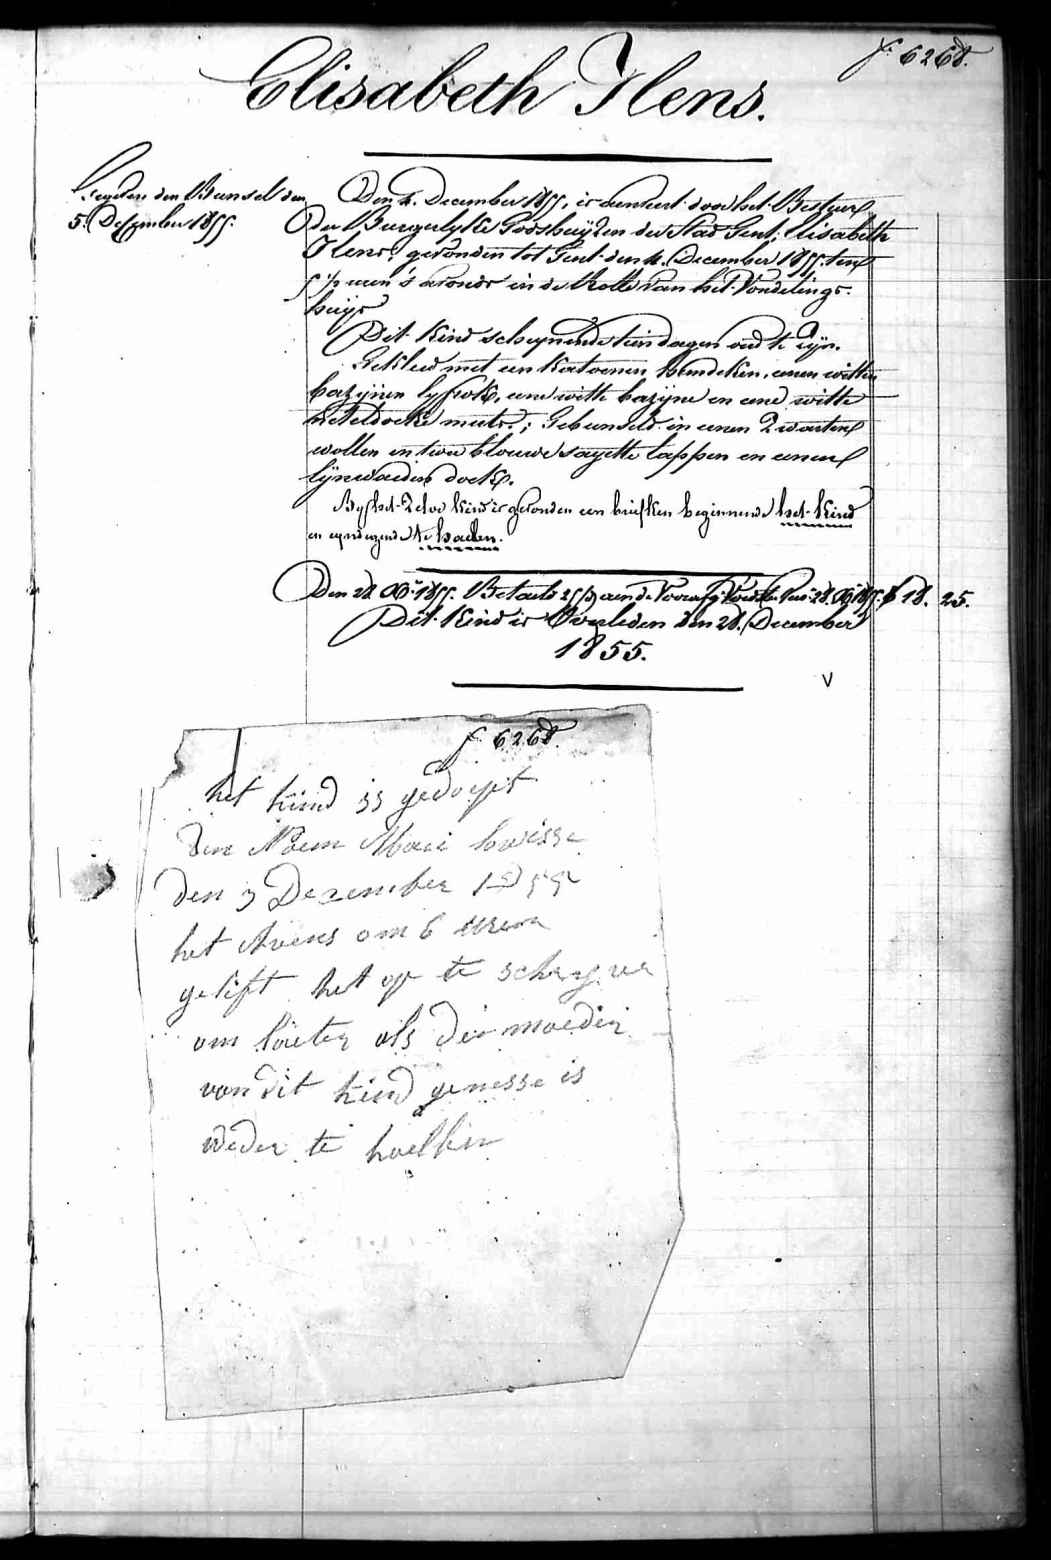 f. 6268.
Elisabeth Ilens.
den Bunsel den
5. December 1855.
Den 4. December 1855, is aenveert door het Bestuur
der Burgerlyke Godshuyzen der Stad Gent; Elisabeth
Ilens, gevonden tot Gent den 4. December 1855. ten
5 ½ uren 's avonds in de Rolle van het Vondelings-
huys
Dit Kind schynende tien dagen oud te zyn.
Gekleed met een katoenen hemdeken, eenen witten
bazynen lyfrok, eene witte bazyne en eene witte
neteldoeke muts; Gebunseld in eenen zwarten
wollen en twee blouwe sayette lappen en eenen
lynwaeden doek.
By het zelve kind is gevonden een briefken beginnende het Kind
en eyndigende te haelen.
Den 28 Xb. 1855. Betaeld aen de 18. 25.
Dit Kind is Overleden den 28. December
1855.
V
f. 6268.
het kind is gedoept
den Naem Mari Lowisse
den 3 Dezember 1855
het Avens om 6 uren
gelift het op te schryven
om laeter als die moeder
van dit kind genesse is
weder te haellen